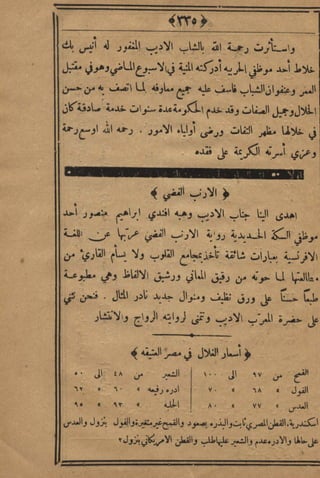 ﴿ ٣٣٥ ﴾
واستأثرت رحمة الله بالشاب الاديب المغفور له أنيس بك
خلاط أحد موظفي الحربيه أدركته المنية في الاسبوع الماضي وهو في مقتبل
العمر وعنفوان الشباب فأسف عليه جميع معارفه لما اتصف به من حسن
الخلال وجميل الصفات وقد خدم الحكومة عدة سنوات خدمة صادقة كان
في خلالها مظهر التفات ورضى أولياء الامور . رحمه الله اوسع رحمة
وعزي أسرته الكريمة على فقده
﴿ الارنب الفضي ﴾
اهدى الينا جناب الاديب وهبه افندي ابراهيم منصور أحد
موظفي السكة الحديدية رواية الارنب الفضي عربها عن اللغة
الافرنسية بعبارات شائقة تأخذ بمجامع القلوب ولا يسأم القارئ من
مطالعتها لما حوته من رقيق المعاني ورشيق الالفاظ وهي مطبوعة
طبعاً حسناً على ورق نظيف ومنوال جديد نادر المثال . فنحن نثني
على حضرة المعرب الاديب ونتمنى لروايته الرواج والانتشار
﴿ أسعار الغلال في مصر العتيقه ﴾
القمح من ٩٧ الى ١٠٠ | الشعير من ٤٨ الى ٥٠
الفول » ٦٨ » ٧٠ | ادره رفيعه » ٦٠ » ٦٢
العدس » ٧٧ » ٨٠ | الحلبه » ٦٣ » ٦٥
اسكندرية . القطن المصري ثابت والبذره بصعود والقمح غير متغيرة والفول بنزول والعدس
على حالها والادره عدم والشعير عليها طلب والقطن الامريكاني بنزول ٢